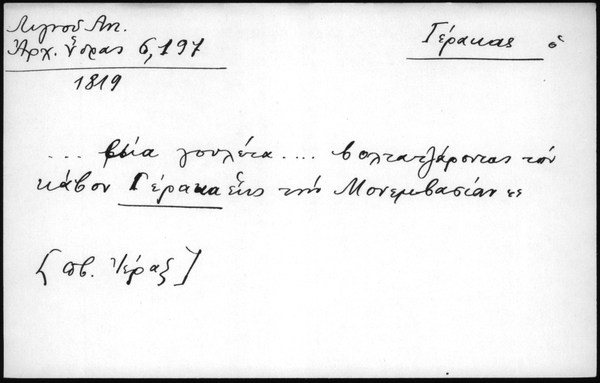 Λιγνοῦ Αντ.
Ἀρχ. Ὕδρας 6,197
1819
Γέρακας ὁ
... μία γουλέτα .... βολτατζάροντας τὸν
κάβον Γέρακα εἰς τὴν Μονεμβασίαν ..
[πβ. Ἱέραξ]